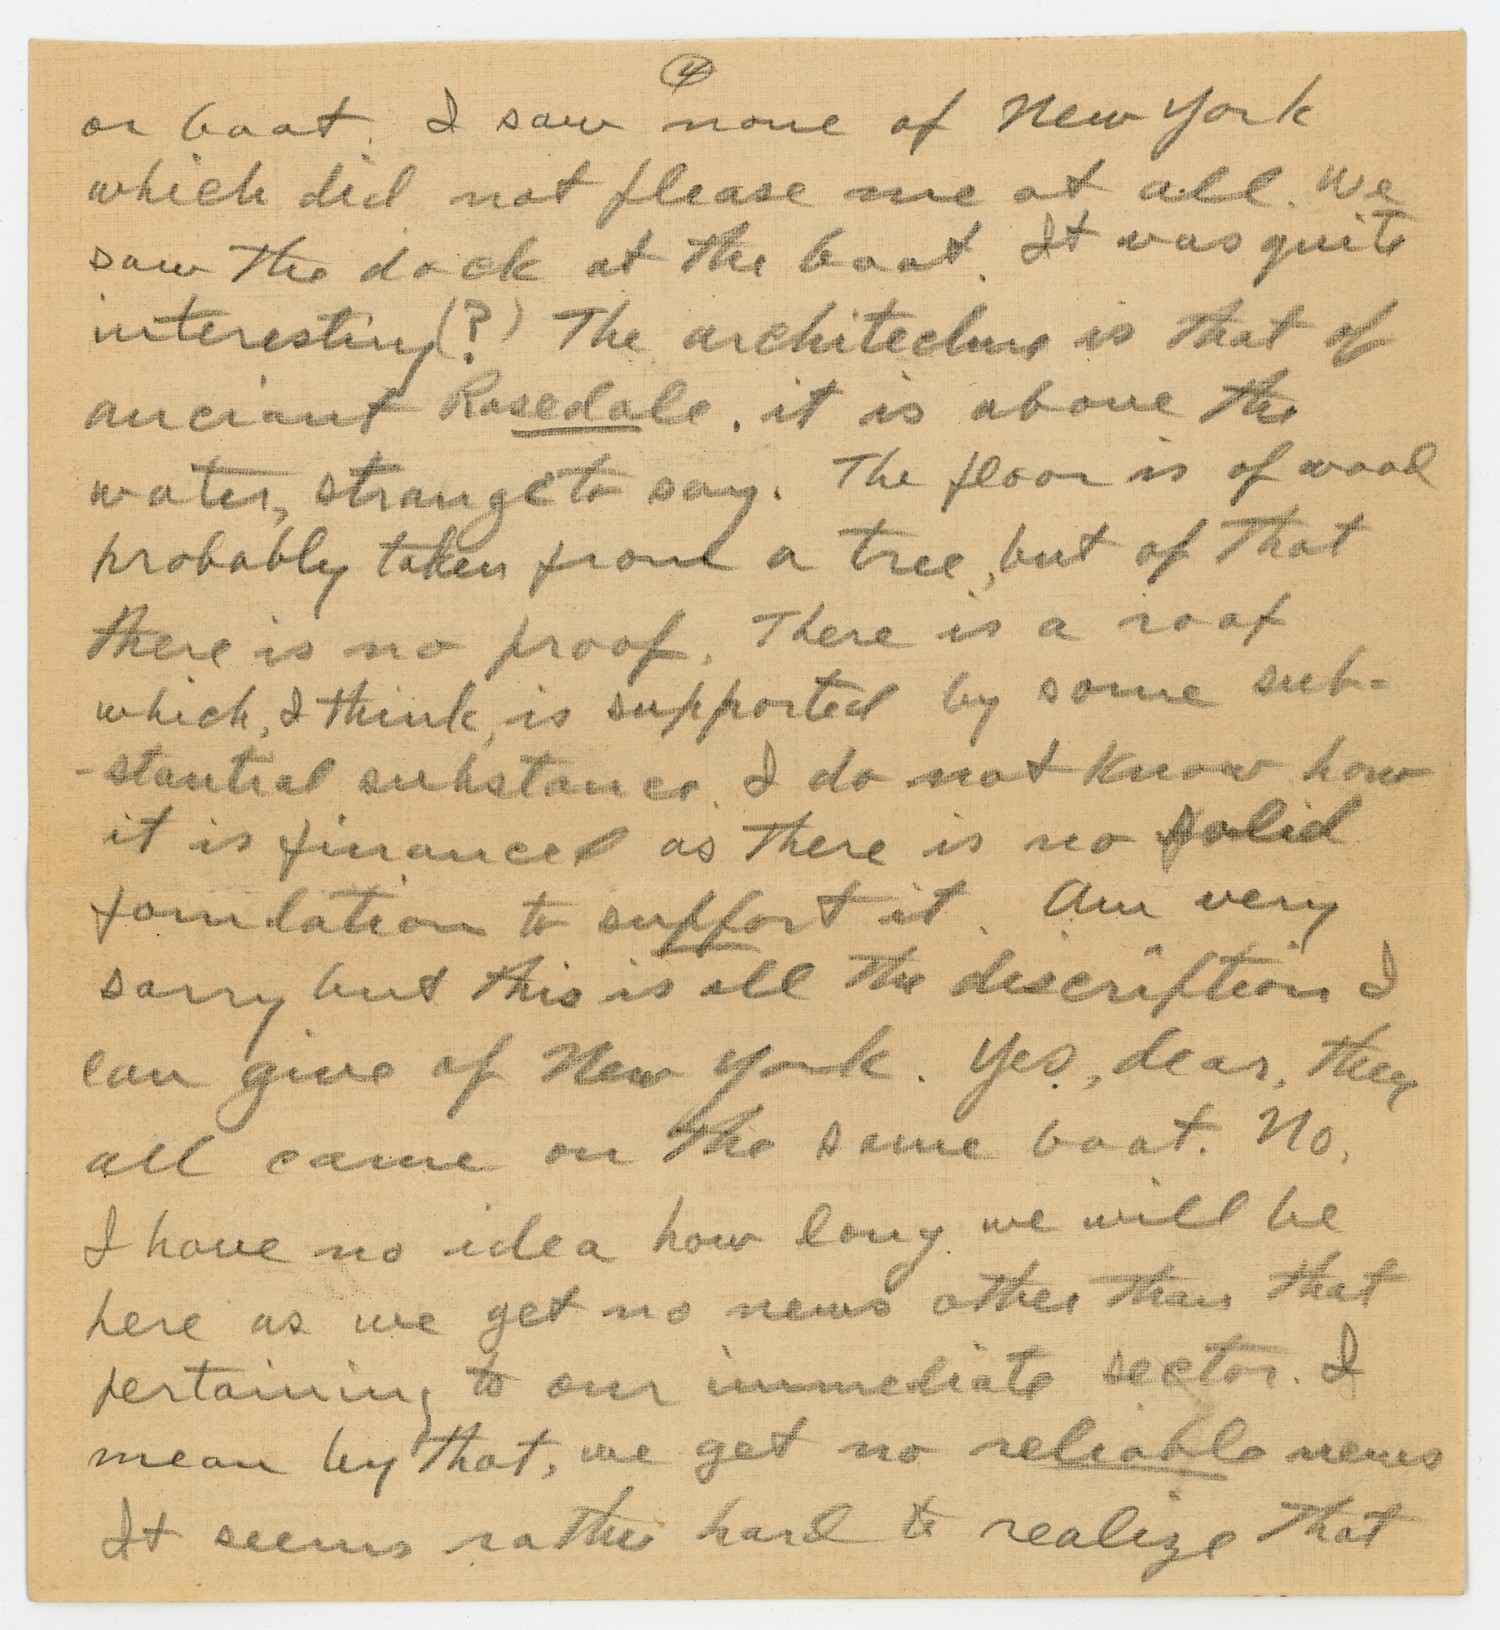 4
or boat. I saw none of New York
which did not please me at all. We
saw the dock at the boat. It was quite
interesting (?) The architecture is that of
anciant Rosedale. it is above the
water, strange to say. The floor is of wood
probably taken from a tree, but of that
there is no proof. There is a roof
which, I think, is supported by some sub-
-stantial substance. I do not know how
it is financed as there is no solid
foundation to support it. Am very
sorry but this is all the discription I
can give of New York. Yes, dear, they
all came on the same boat. No,
I have no idea how long we will be
here as we get no news other than that
pertaining to our immediate sector. I
mean by that, we get no reliable news
It seems rather hard to realize that